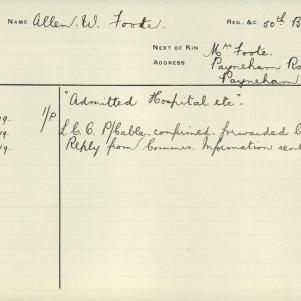 NAME Allen. W. Foote. REG. &C. 50th B
NEXT OF KIN Mrs Foote.
ADDRESS Payneham Ro
Payneham
"Admitted Hospital etc".
19. 1/P L.C.C. P/Cable. confirmed. forwarded C
19. Reply from Commes. Information sent
19.